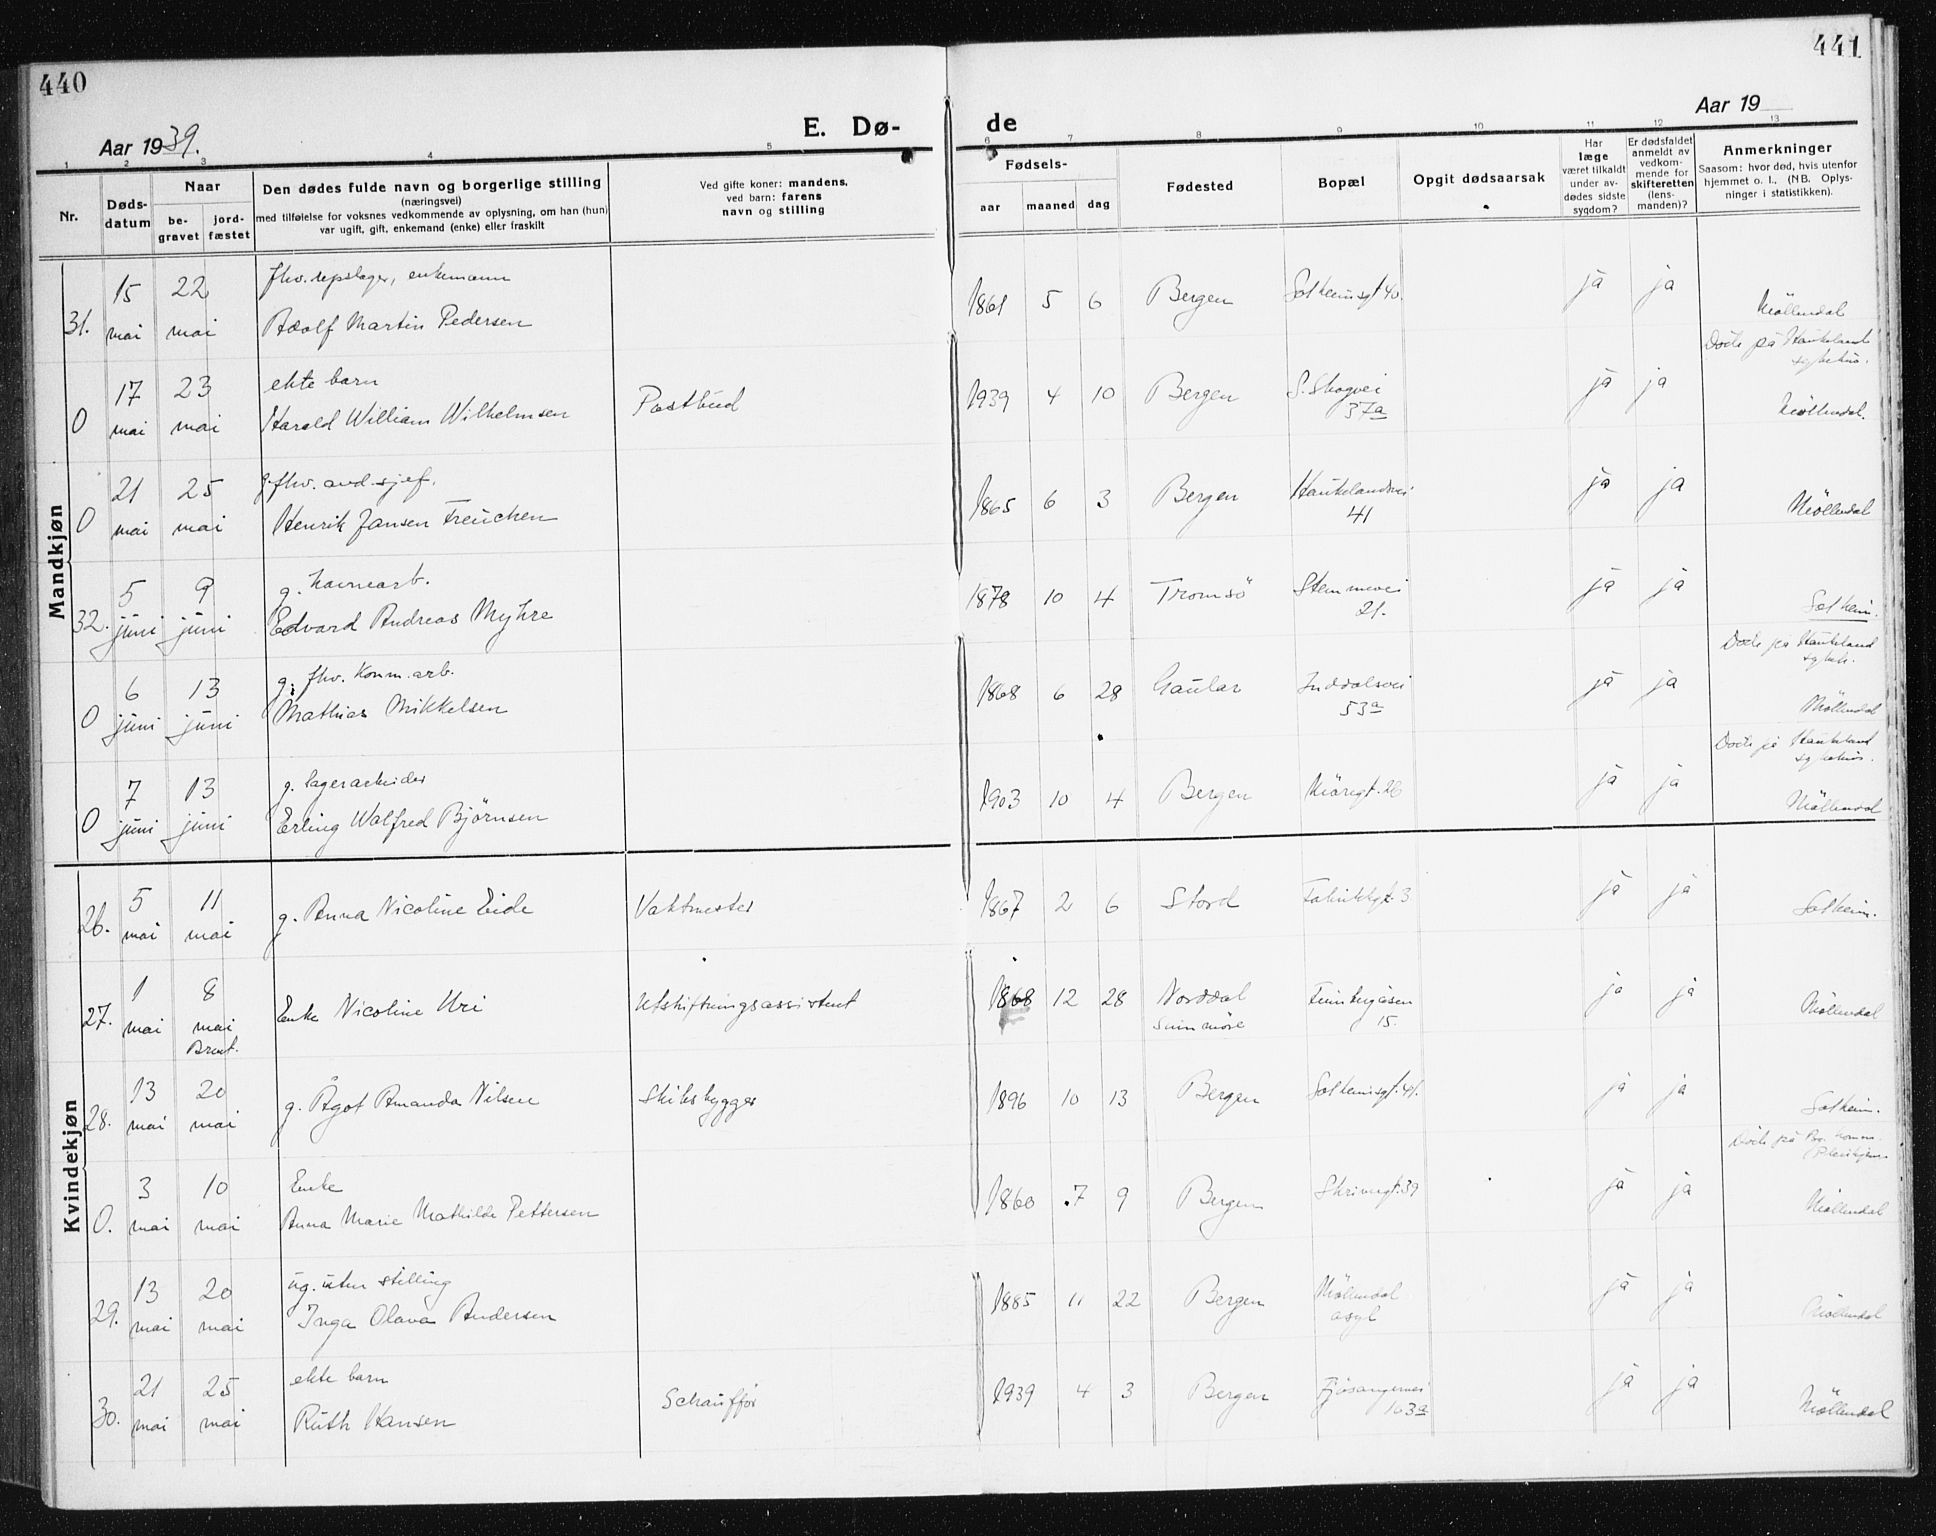 440
441
Aar 1939.
E. Dø-
de
Aar 19
1 2 3 4 5 6 7 8 9 10 11 12 13
Nr.
Døds-
datum
Naar
be-
gravet
jord-
fæstet
Den dødes fulde navn og borgerlige stilling
(næringsvei)
med tilføielse for voksnes vedkommende av oplysning, om han (hun)
var ugift, gift, enkemand (enke) eller fraskilt
Ved gifte koner: mandens,
ved barn: farens
navn og stilling
Fødsels-
aar maaned dag
Fødested
Bopæl
Opgit dødsaarsak
Har
læge
været tilkaldt
under av-
dødes sidste
sygdom?
Er dødsfaldet
anmeldt av
vedkom-
mende for
skifteretten
(lens-
manden)?
Anmerkninger
Saasom: hvor død, hvis utenfor
hjemmet o. l., (NB. Oplys-
ninger i statistikken).
Mandkjøn
31. 15 mai 22 mai
fhv. repslager, enkemann
Adolf Martin Pedersen
1861 5 6 Bergen Solheimsgt. 40. ja ja
Möllendal
0 17 mai 23 mai
ekte barn
Harald William Wilhelmsen
Postbud
1939 4 10 Bergen S. Skogvei
37a
ja ja
Døde på Haukeland
sykehus.
Möllendal.
0 21 mai 25 mai
g. fhv. avd. sjef.
Henrik Jansen Freuchen
1865 6 3 Bergen Haukelandsvei
41
ja ja
Möllendal
32. 5 juni 9 juni
g. havnearb.
Edvard Andreas Myhre
1878 10 4 Tromsö Stemmevei
21.
ja ja
Solheim.
0 6 juni 13 juni
g. fhv. komm. arb.
Mathias Mikkelsen
1868 6 28 Gaular Inddalsvei
53a
ja ja
Døde på Haukeland
sykeh.
Möllendal
0 7 juni 13 juni
g. lagerarbeider
Erling Walfred Bjørnsen
1903 10 4 Bergen 26 ja ja
Døde på Haukeland
sykehus.
Möllendal
Kvindekjøn
26. 5 mai 11 mai
g. Anna Nicoline Eide
Vaktmester
1867 2 6 Stord Fabrikkgt. 3 ja ja
Solheim.
27. 1 mai 8 mai
Brent.
Enke Nicoline Uri
Utskiftningsassistent
1868 12 28 Norddal
Sunnmöre
15.
ja ja
Möllendal
28. 13 mai 20 mai
g. Ågot Amanda Nilsen
Skibsbygger
1896 10 13 Bergen Solheimsgt. 41. ja ja
Solheim.
0. 3 mai 10 mai
Enke
Anna Marie Mathilde Pettersen
1860 7 9 Bergen Skrivergt. 39 ja ja
Døde på Be. komm.
Pleiehjem
Möllendal
29. 13 mai 20 mai
ug. uten stilling
Inga Olava Andersen
1885 11 22 Bergen Möllendal
asyl
ja ja
Möllendal
30. 21 mai 25 mai
ekte barn
Ruth Hansen
Schauffør
1939 4 3 Bergen Fjøsangervei
163a
ja ja
Möllendal